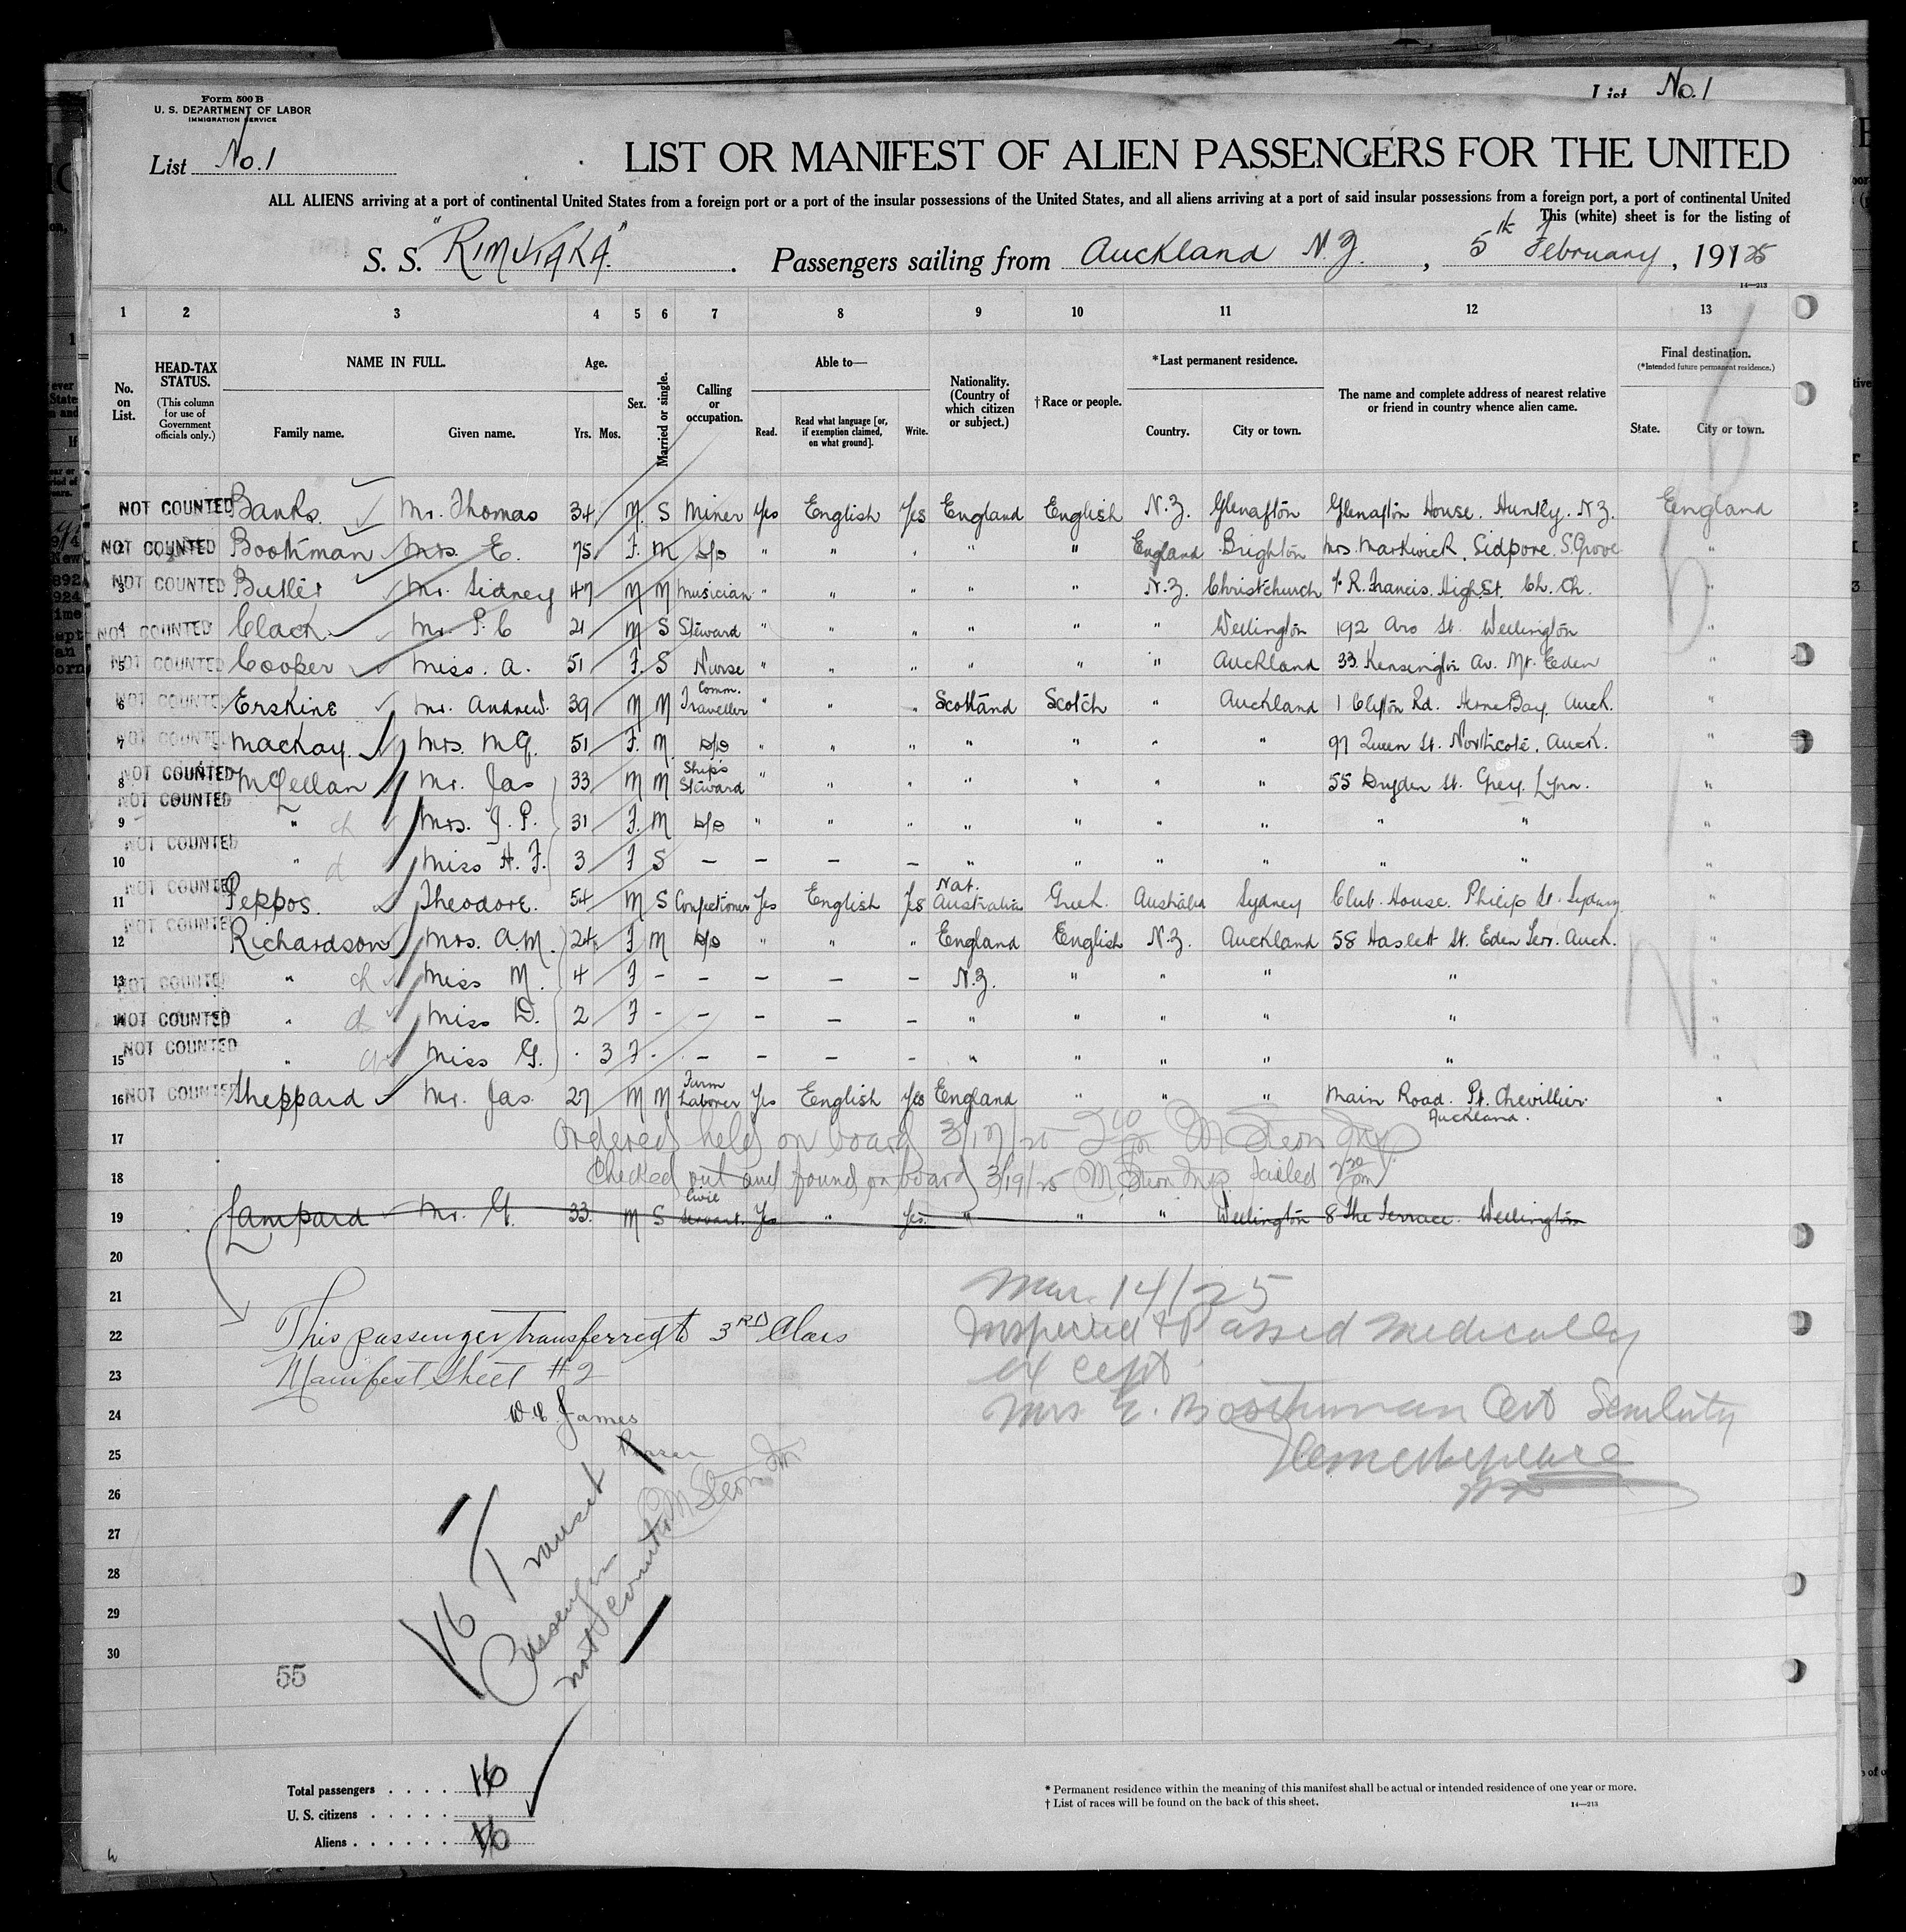 Form 500 B
U. S. DEPARTMENT OF LABOR
IMMIGRATION SERVICE
List No. 1
List No. 1
LIST OR MANIFEST OF ALIEN PASSENGERS FOR THE UNITED
ALL ALIENS arriving at a port of continental United States from a foreign port or a port of the insular possessions of the United States, and all aliens arriving at a port of said insular possessions from a foreign port, a port of continental United
This (white) sheet is for the listing of
S. S. "RIMUTAKA". Passengers sailing from Auckland N.Z., 5th February, 1925
14—213
1 2 3 4 5 6 7 8 9 10 11 12 13
No. on List. HEAD-TAX STATUS. (This column for use of Government officials only.) NAME IN FULL. Family name. Given name. Age. Yrs. Mos. Sex. Married or single. Calling or occupation. Able to— Read. Read what language [or, if exemption claimed, on what ground]. Write. Nationality. (Country of which citizen or subject.) † Race or people. * Last permanent residence. Country. City or town. The name and complete address of nearest relative or friend in country whence alien came. Final destination. (* Intended future permanent residence.) State. City or town.
NOT COUNTED Banks. Mr. Thomas 34 M. S Miner Yes English Yes England English N.Z. Glenafton Glenafton House. Huntly. N.Z. England
2 NOT COUNTED Boothman Mrs. E. 75 F. M D/o " " " " " England Brighton Mrs. Markwick, Sidpore, S. Grove "
3 NOT COUNTED Butler Mr. Sidney 47 M M Musician " " " " " N.Z. Christchurch c/o R. Francis. High St. Ch. Ch. "
4 NOT COUNTED Clack Mr. P. C 21 M S Steward " " " " " " Wellington 192 Aro St. Wellington "
5 NOT COUNTED Cooper Miss. A. 51 F. S Nurse " " " " " " Auckland 33 Kensington Av. Mt. Eden "
6 NOT COUNTED Erskine Mr. Andrew. 39 M M Comm. Traveller " " " Scotland Scotch " Auckland 1 Clifton Rd. Herne Bay. Auck. "
7 NOT COUNTED Mackay. Mrs. M.G. 51 F. M. D/o " " " " " " " 97 Queen St. Northcote, Auck. "
8 NOT COUNTED McLellan Mr. Jas 33 M M Ship's Steward " " " " " " " 55 Dryden St. Grey Lynn. "
9 NOT COUNTED " ch Mrs. J. P. 31 F. M D/o " " " " " " " " " "
10 NOT COUNTED " d Miss H. F. 3 F S – – – – " " " " " " "
11 NOT COUNTED Peppos. Theodore. 54 M S Confectioner Yes English Yes Nat. Australia Greek. Australia Sydney Club House. Philip St. Sydney. "
12 NOT COUNTED Richardson Mrs. A.M. 24 F M D/o " " " England English N.Z. Auckland 58 Haslett St. Eden Terr. Auck. "
13 NOT COUNTED " ch Miss M. 4 F - – – – – N.Z. " " " " "
14 NOT COUNTED " d Miss D. 2 F - – – – – " " " " " "
15 NOT COUNTED " Miss G. · 3 F - – – – – " " " " " "
16 NOT COUNTED Sheppard Mr. Jas. 27 M M Farm Laborer Yes English Yes England " " " Main Road. Pt. Chevillier. Auckland. "
17 Ordered held on board 3/17/25
18 Checked out and found on board 3/19/25 Sailed
19 Lampard Mr. G. 33. M S Civil Servant. Yes " Yes. " " " Wellington 8 The Terrace. Wellington
20
21 Mar. 14/25
22 This passenger transferred to 3RD Class Inspected & Passed medically
23 Manifest Sheet #2 except
24 James Mrs E. Boothman Cert Senility
25 Purser
26
27
28
29
30
16 Transit Passengers not counted
55
Total passengers . . . . . 16
U. S. citizens . . . . .
Aliens . . . . . . 16
* Permanent residence within the meaning of this manifest shall be actual or intended residence of one year or more.
† List of races will be found on the back of this sheet.
14—213